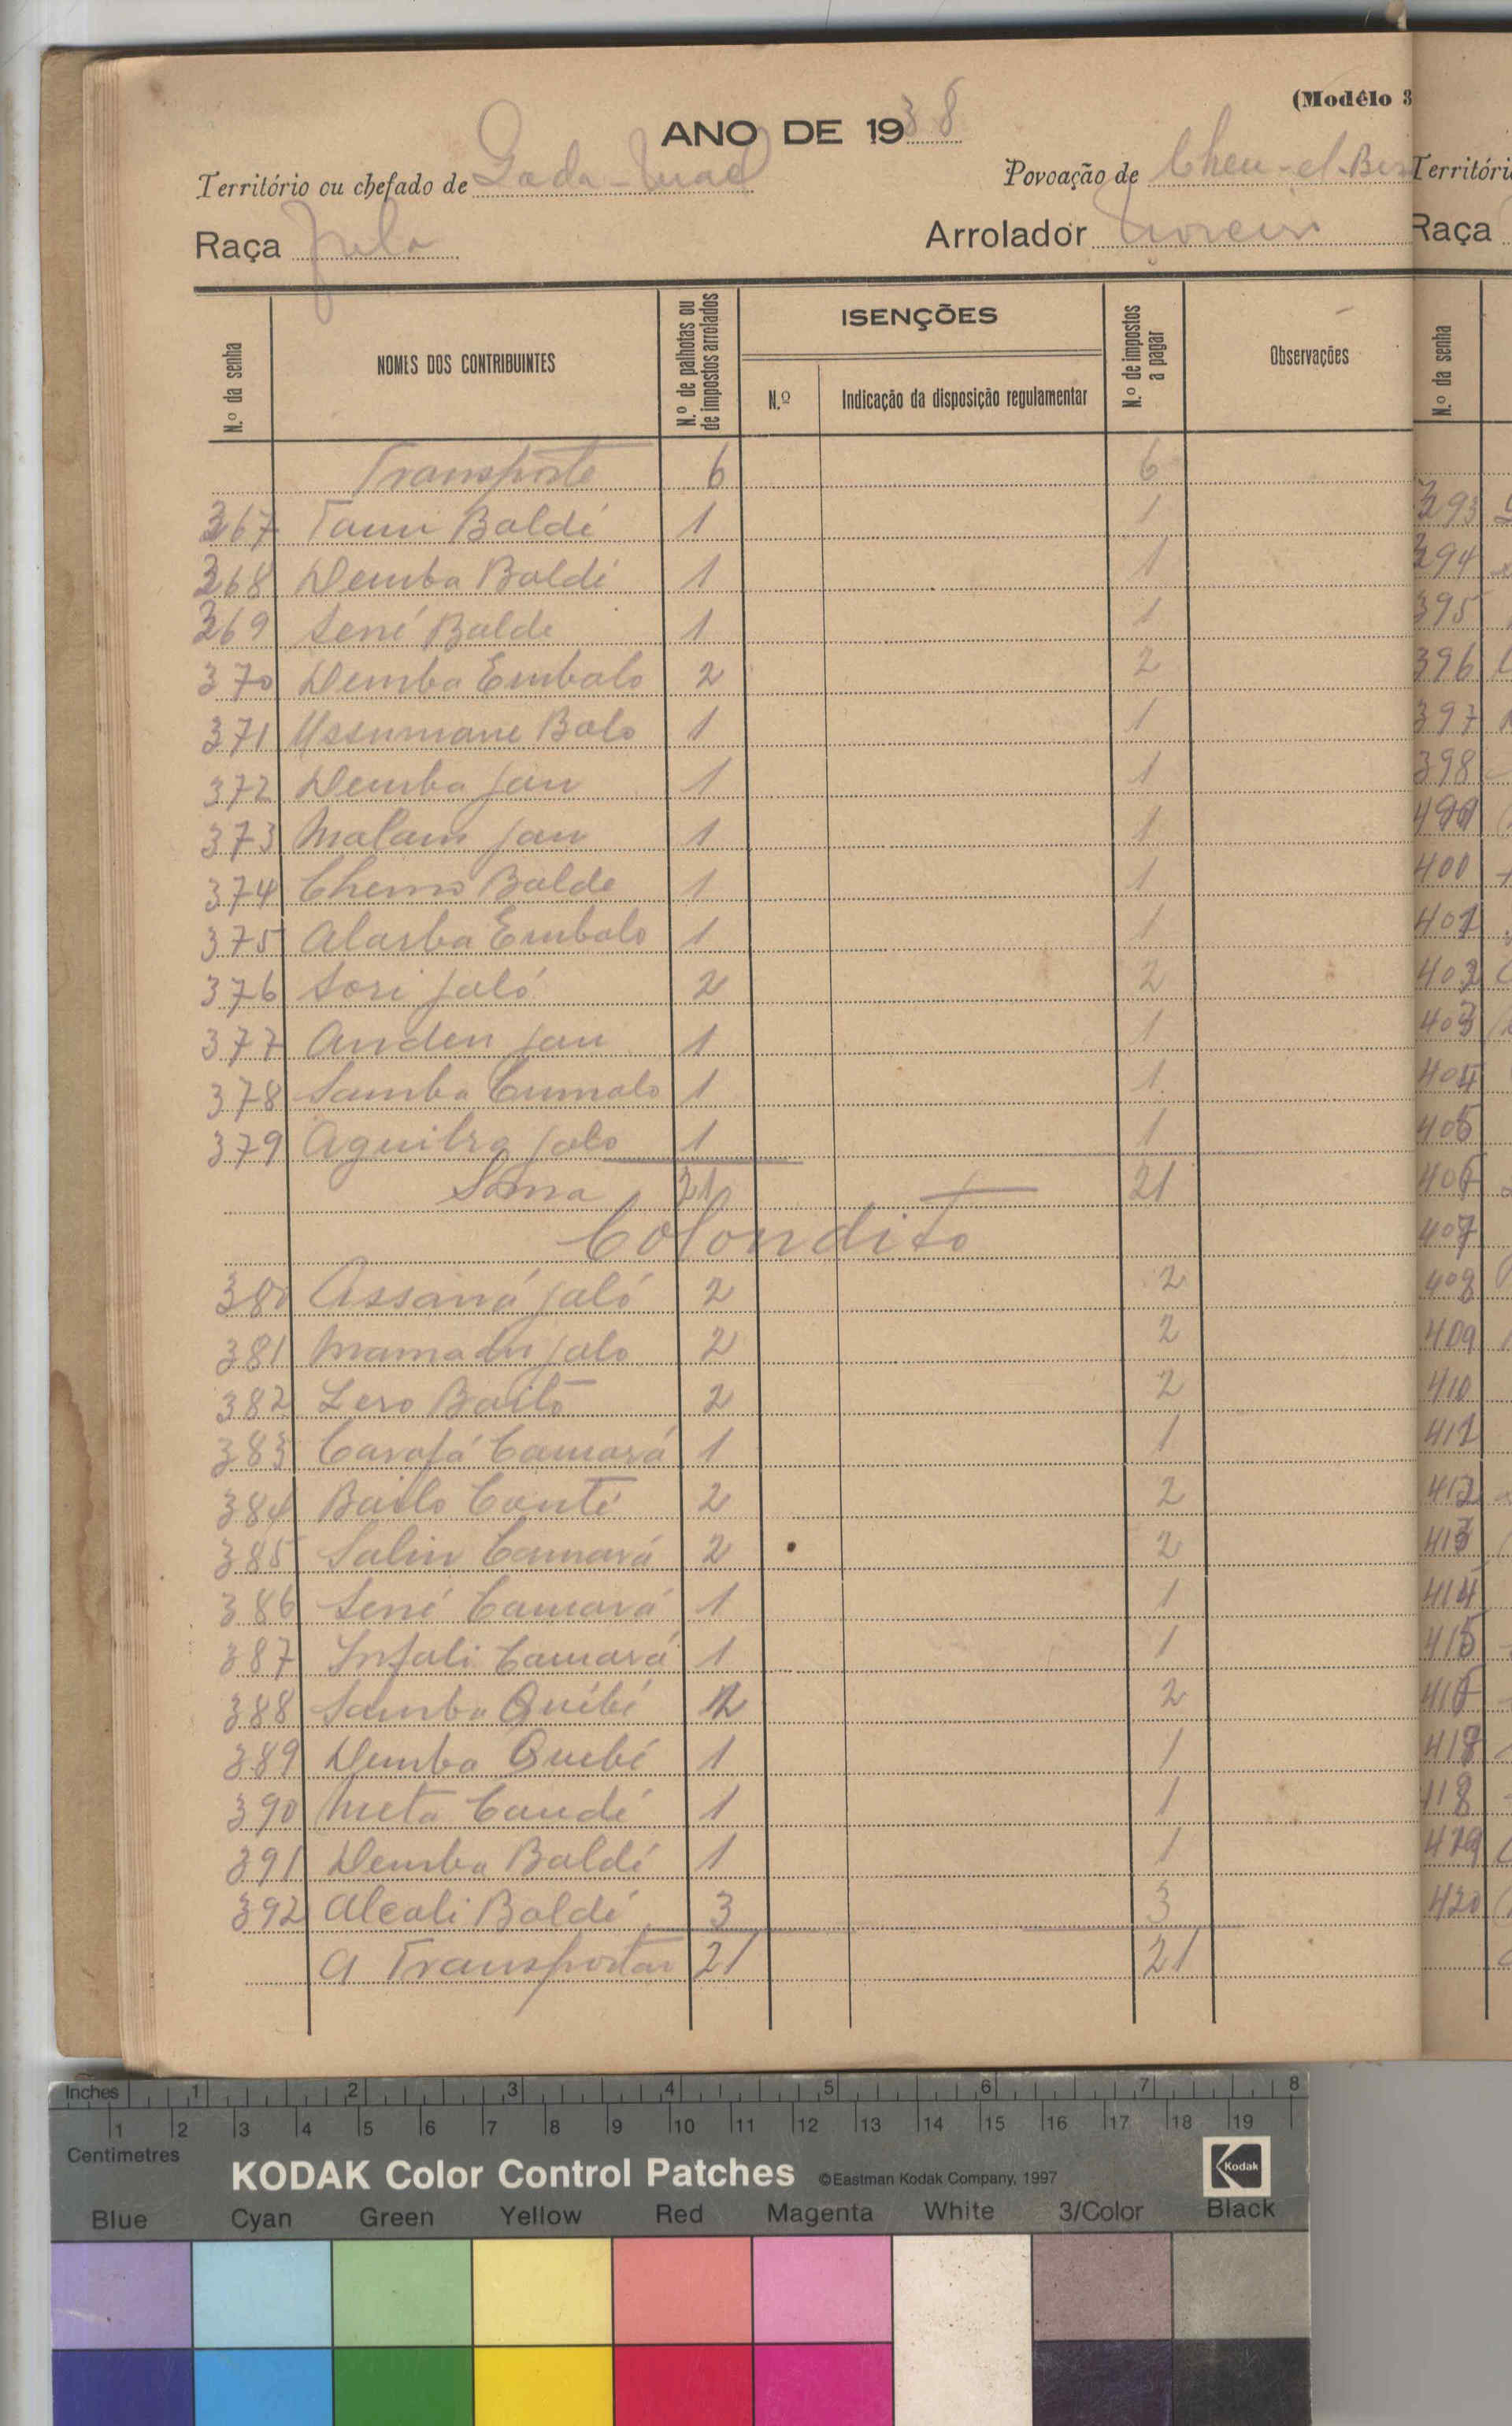 (Modêlo 3
ANO DE 1938
Território ou chefado de Gada-Mael Povoação de Cheu-el-Ber
Raça Fula Arrolador Moreira
N.º da senha NOMES DOS CONTRIBUINTES N.º de palhotas ou de impostos arrolados ISENÇÕES N.º Indicação da disposição regulamentar N.º de impostos a pagar Observações
Transporte 6 6
367 Baldé 1 1
368 Demba Baldé 1 1
369 Sené Balde 1 1
370 Demba Embalo 2 2
371 Ussumane Balo 1 1
372 Demba Jau 1 1
373 Malam Jau 1 1
374 Cherno Balde 1 1
375 Alarba Embalo 1 1
376 Sori Jaló 2 2
377 Anden Jau 1 1
378 Samba Cumalo 1 1
379 Jalo 1 1
Soma 21 21
Colondito
380 Assaná Jaló 2 2
381 Mamadu Jalo 2 2
382 Lero Bailo 2 2
383 Carafá Camará 1 1
384 Bailo Canté 2 2
385 Salin Camará 2 2
386 Sené Camará 1 1
387 Infali Camará 1 1
388 Samba Québé 2 2
389 Demba Quebé 1 1
390 Meta Candé 1 1
391 Demba Baldé 1 1
392 Alcali Baldé 3 3
A Transportar 21 21
Territóri
Raça
N.º da senha
393
394
395
396
397
398
400
401
402
403
404
405
406
407
408
409
410
411
412
413
414
415
416
418
419
420
Inches 1 2 3 4 5 6 7 8
1 2 3 4 5 6 7 8 9 10 11 12 13 14 15 16 17 18 19
Centimetres
KODAK Color Control Patches ©Eastman Kodak Company, 1997 Kodak
Blue Cyan Green Yellow Red Magenta White 3/Color Black